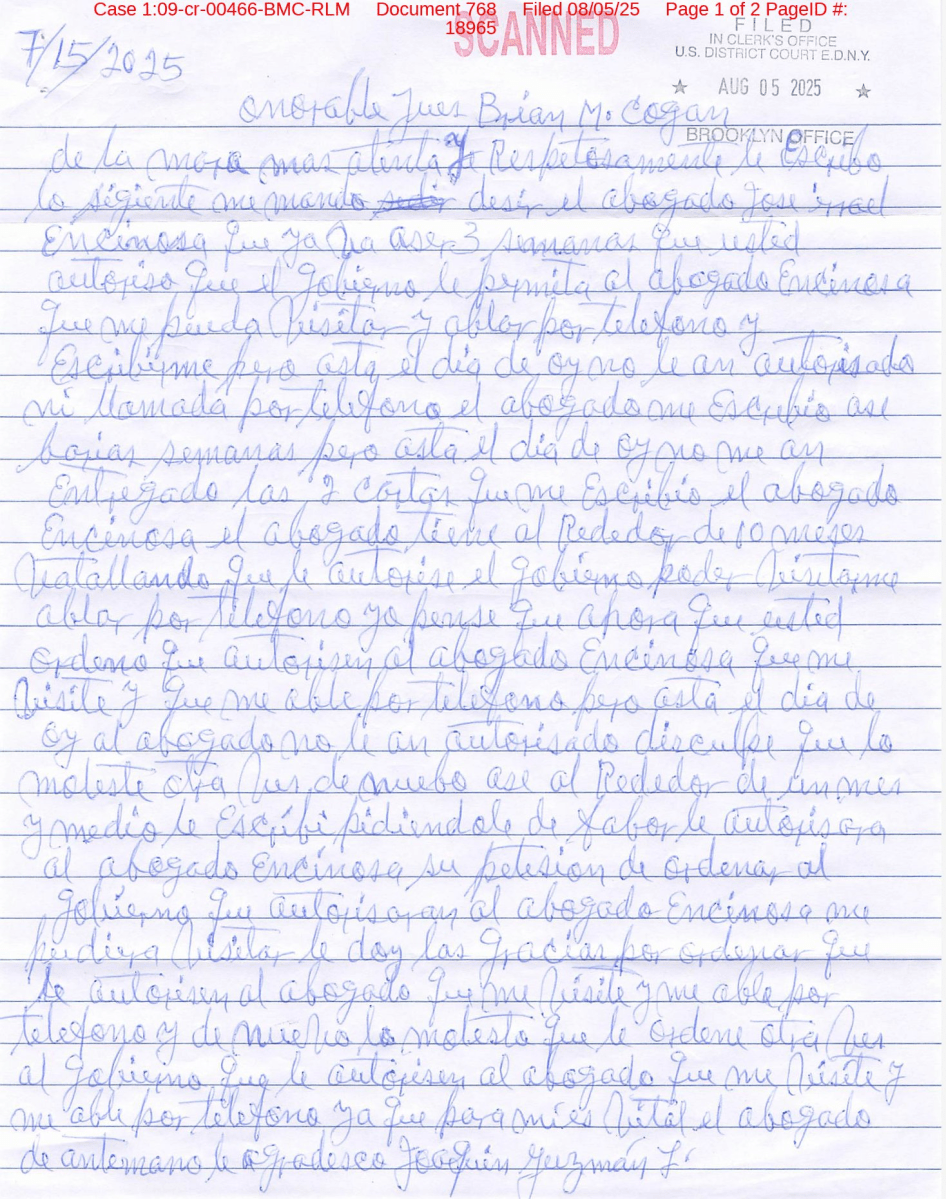 Case 1:09-cr-00466-BMC-RLM Document 768 Filed 08/05/25 Page 1 of 2 PageID #:
18965
SCANNED
FILED
IN CLERK'S OFFICE
U.S. DISTRICT COURT E.D.N.Y.
★ AUG 05 2025 ★
BROOKLYN OFFICE
7/15/2025
onorable Jues Brian M. Cogan
de la mara mas atenta y Respetosamente le Escribo
lo sigiente me mando desir el abogado Jose
Encinosa que ya va aser 3 semanas que usted
autoriso que el gobierno le permita al abogado Encinosa
que me pueda Visitar y ablar por telefono y
Escribirme pero asta el dia de oy no le an autorisado
ni llamada por telefono el abogado me Escribio ase
barias semanas pero asta el dia de oy no me an
Entregado las 2 cartas que me Escribio el abogado
Encinosa el abogado tiene al Rededor de 10 meses
Vatallando que le autorise el gobierno poder Visitarme
ablar por telefono yo pense que ahora que usted
ordeno que autorisen al abogado Encinosa que me
Visite y que me able por telefono pero asta el dia de
oy al abogado no le an autorisado disculpe que lo
moleste otra Ves de nuebo ase al Rededor de un mes
y medio le Escribi pidiendole de fabor le autorisara
al abogado Encinosa su petision de ordenar al
gobierno que autorisaran al abogado Encinosa me
pudiera Visitar le doy las gracias por ordenar que
le autorisen al abogado que me Visite y me able por
telefono y de nuevo lo molesto que le ordene otra Ves
al gobierno que le autorisen al abogado que me Visite y
me able por telefono ya que para mi es Vital el abogado
de antemano le agradesco Joaquin Guzmán L.